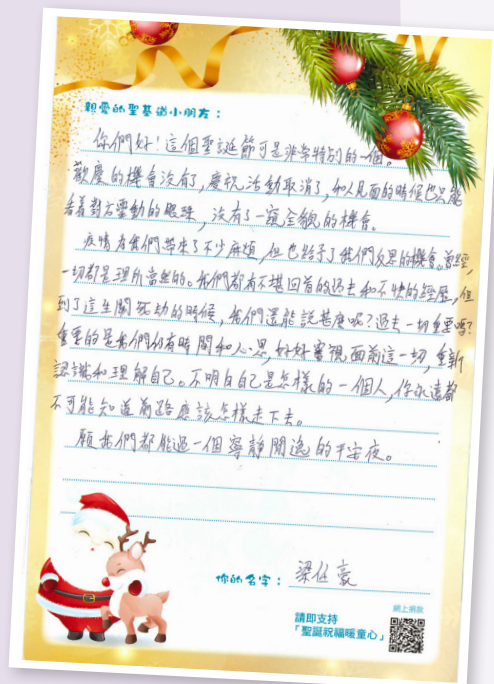 親愛的聖基道小朋友：
你們好！這個聖誕節可是非常特別的一個。
歡慶的機會沒有了，慶祝活動取消了，和人見面的時候也只能
看着對方靈動的眼珠，沒有了一窺全貌的機會。
疫情為我們帶來了不少麻煩，但也給予了我們反思的機會。曾經，
一切都是理所當然的。我們都有不堪回首的過去和不快的經歷，但
到了這生關死劫的時候，我們還能說甚麼呢？過去一切重要嗎？
重要的是我們仍有時間和心思，好好審視面前這一切，重新
認識和理解自己。不明白自己是怎樣的一個人，你永遠都
不可能知道前路應該怎樣走下去。
願我們都能過一個寧靜閒逸的平安夜。
你的名字：梁任豪
網上捐款
請即支持
「聖誕祝福暖童心」